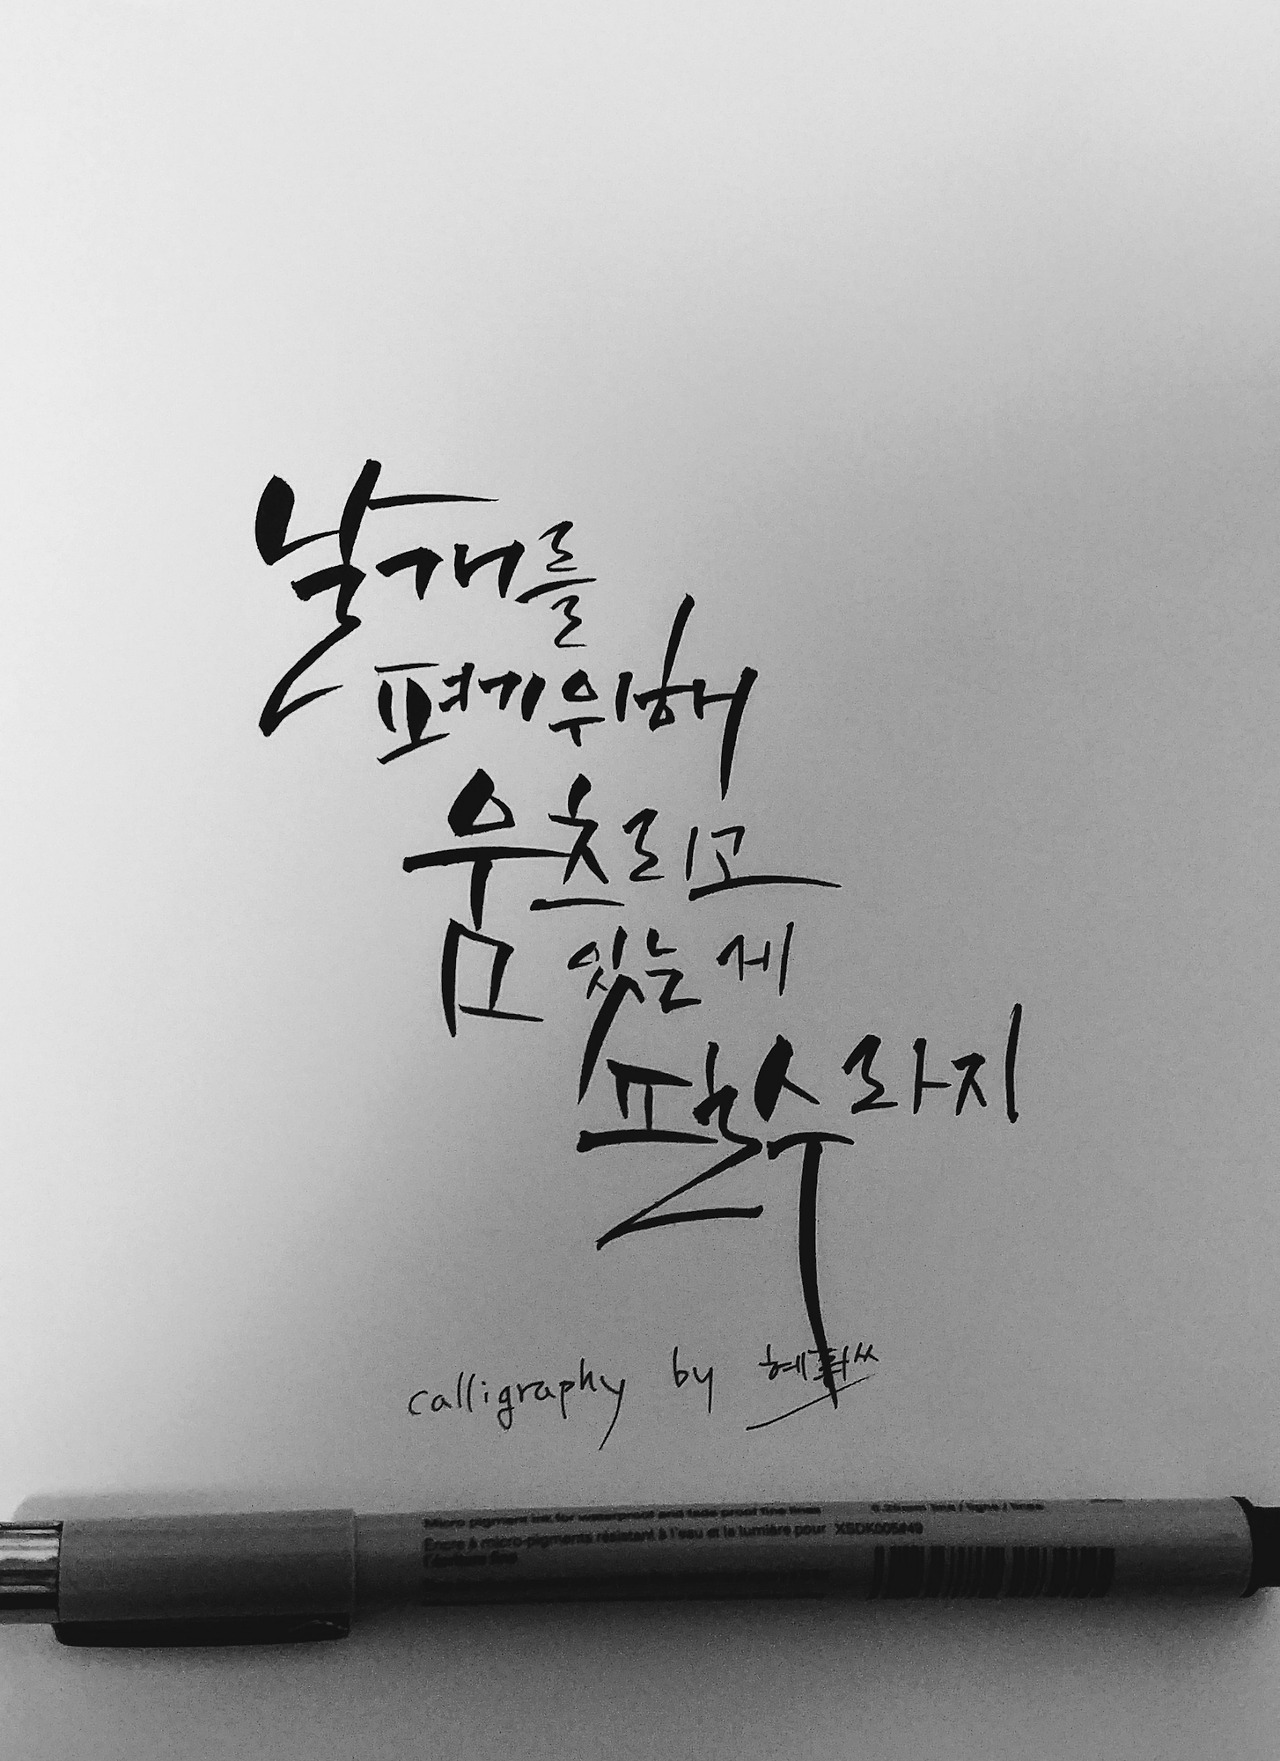 날개를
펴기위해
움츠리고
있는 게
필수라지
calligraphy by
Micro pigment ink for waterproof and fade proof fine lines
Encre à micro-pigments résistant à l'eau et la lumière pour XSDK005#49
l'écriture fine